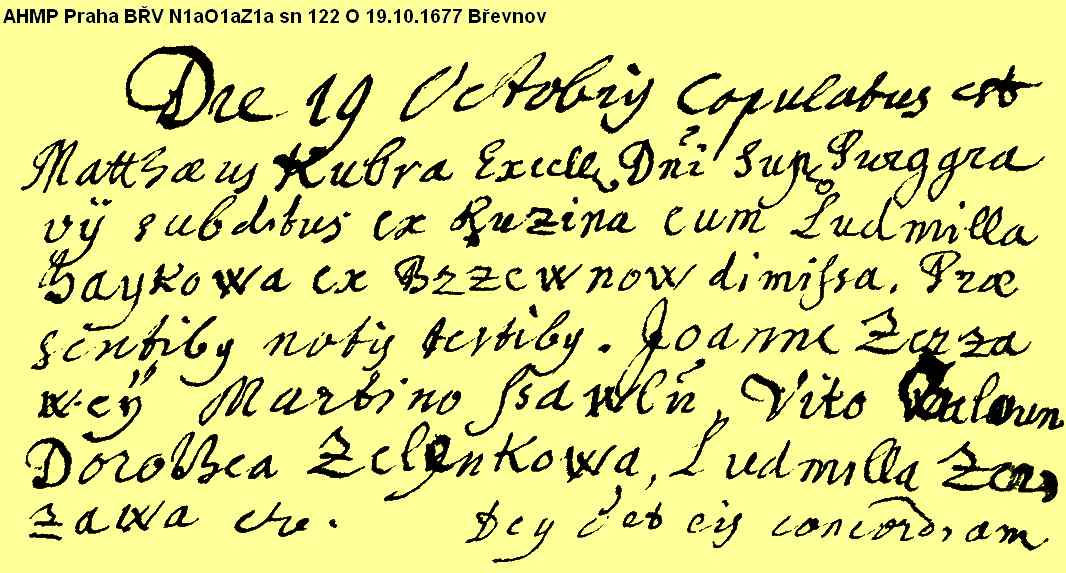 AHMP Praha BŘV N1aO1aZ1a sn 122 O 19.10.1677 Břevnov
Die 19 Octobris Copulatus est
Matthaeus Kubra Excell. Dñi Sup. Purggra
vÿ subditus ex Ruzina cum Ludmilla
Haykowa ex Brzewnow dimissa. Præ
sentibus notis testibus. Joanne Zerza
weÿ Martino Ssawlů, Vito
Dorothea Zelenkowa, Ludmilla Zer
zawa etc. Deus det eis concordiam